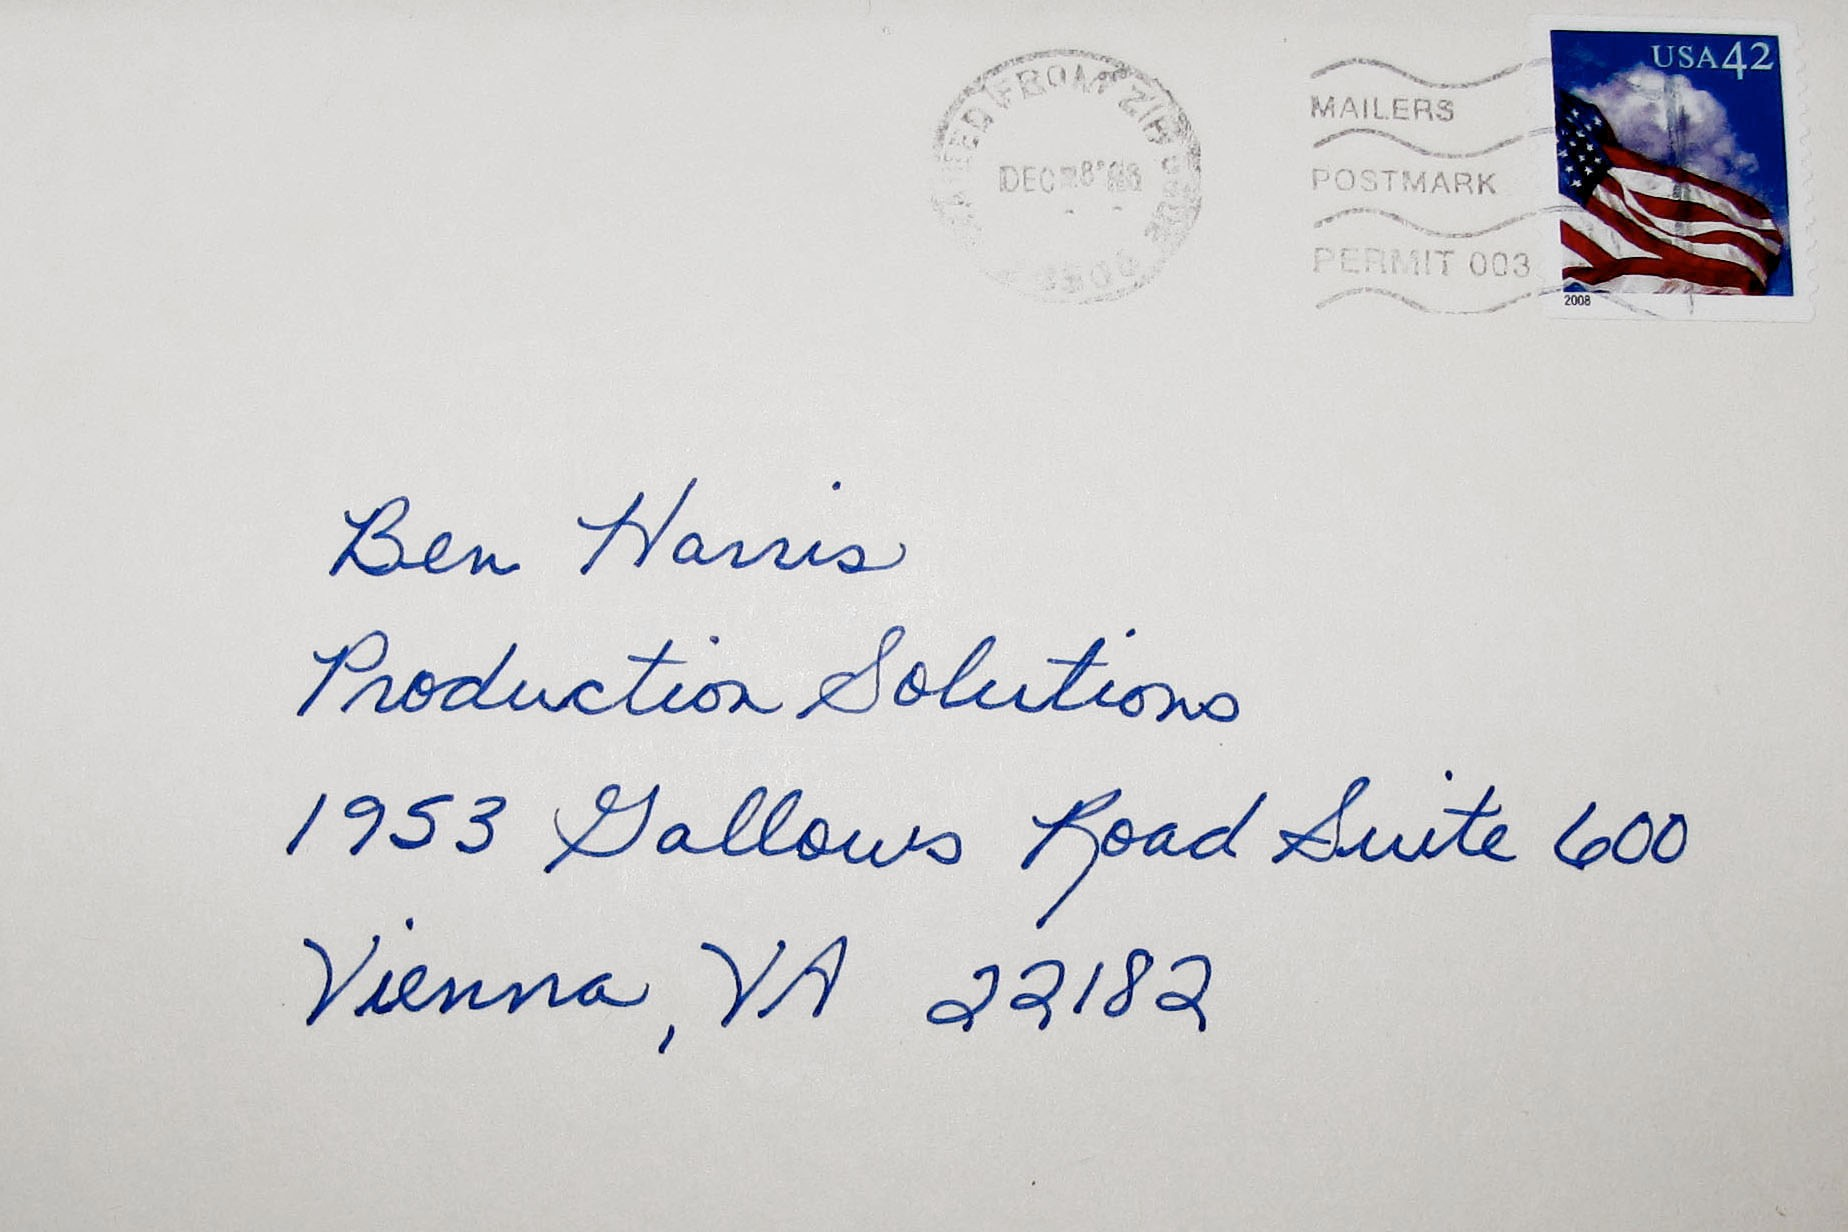 USA 42
FROM ZIP
DEC
MAILERS
POSTMARK
PERMIT 003
2008
Ben Harris
Production Solutions
1953 Gallows Road Suite 600
Vienna, VA 22182